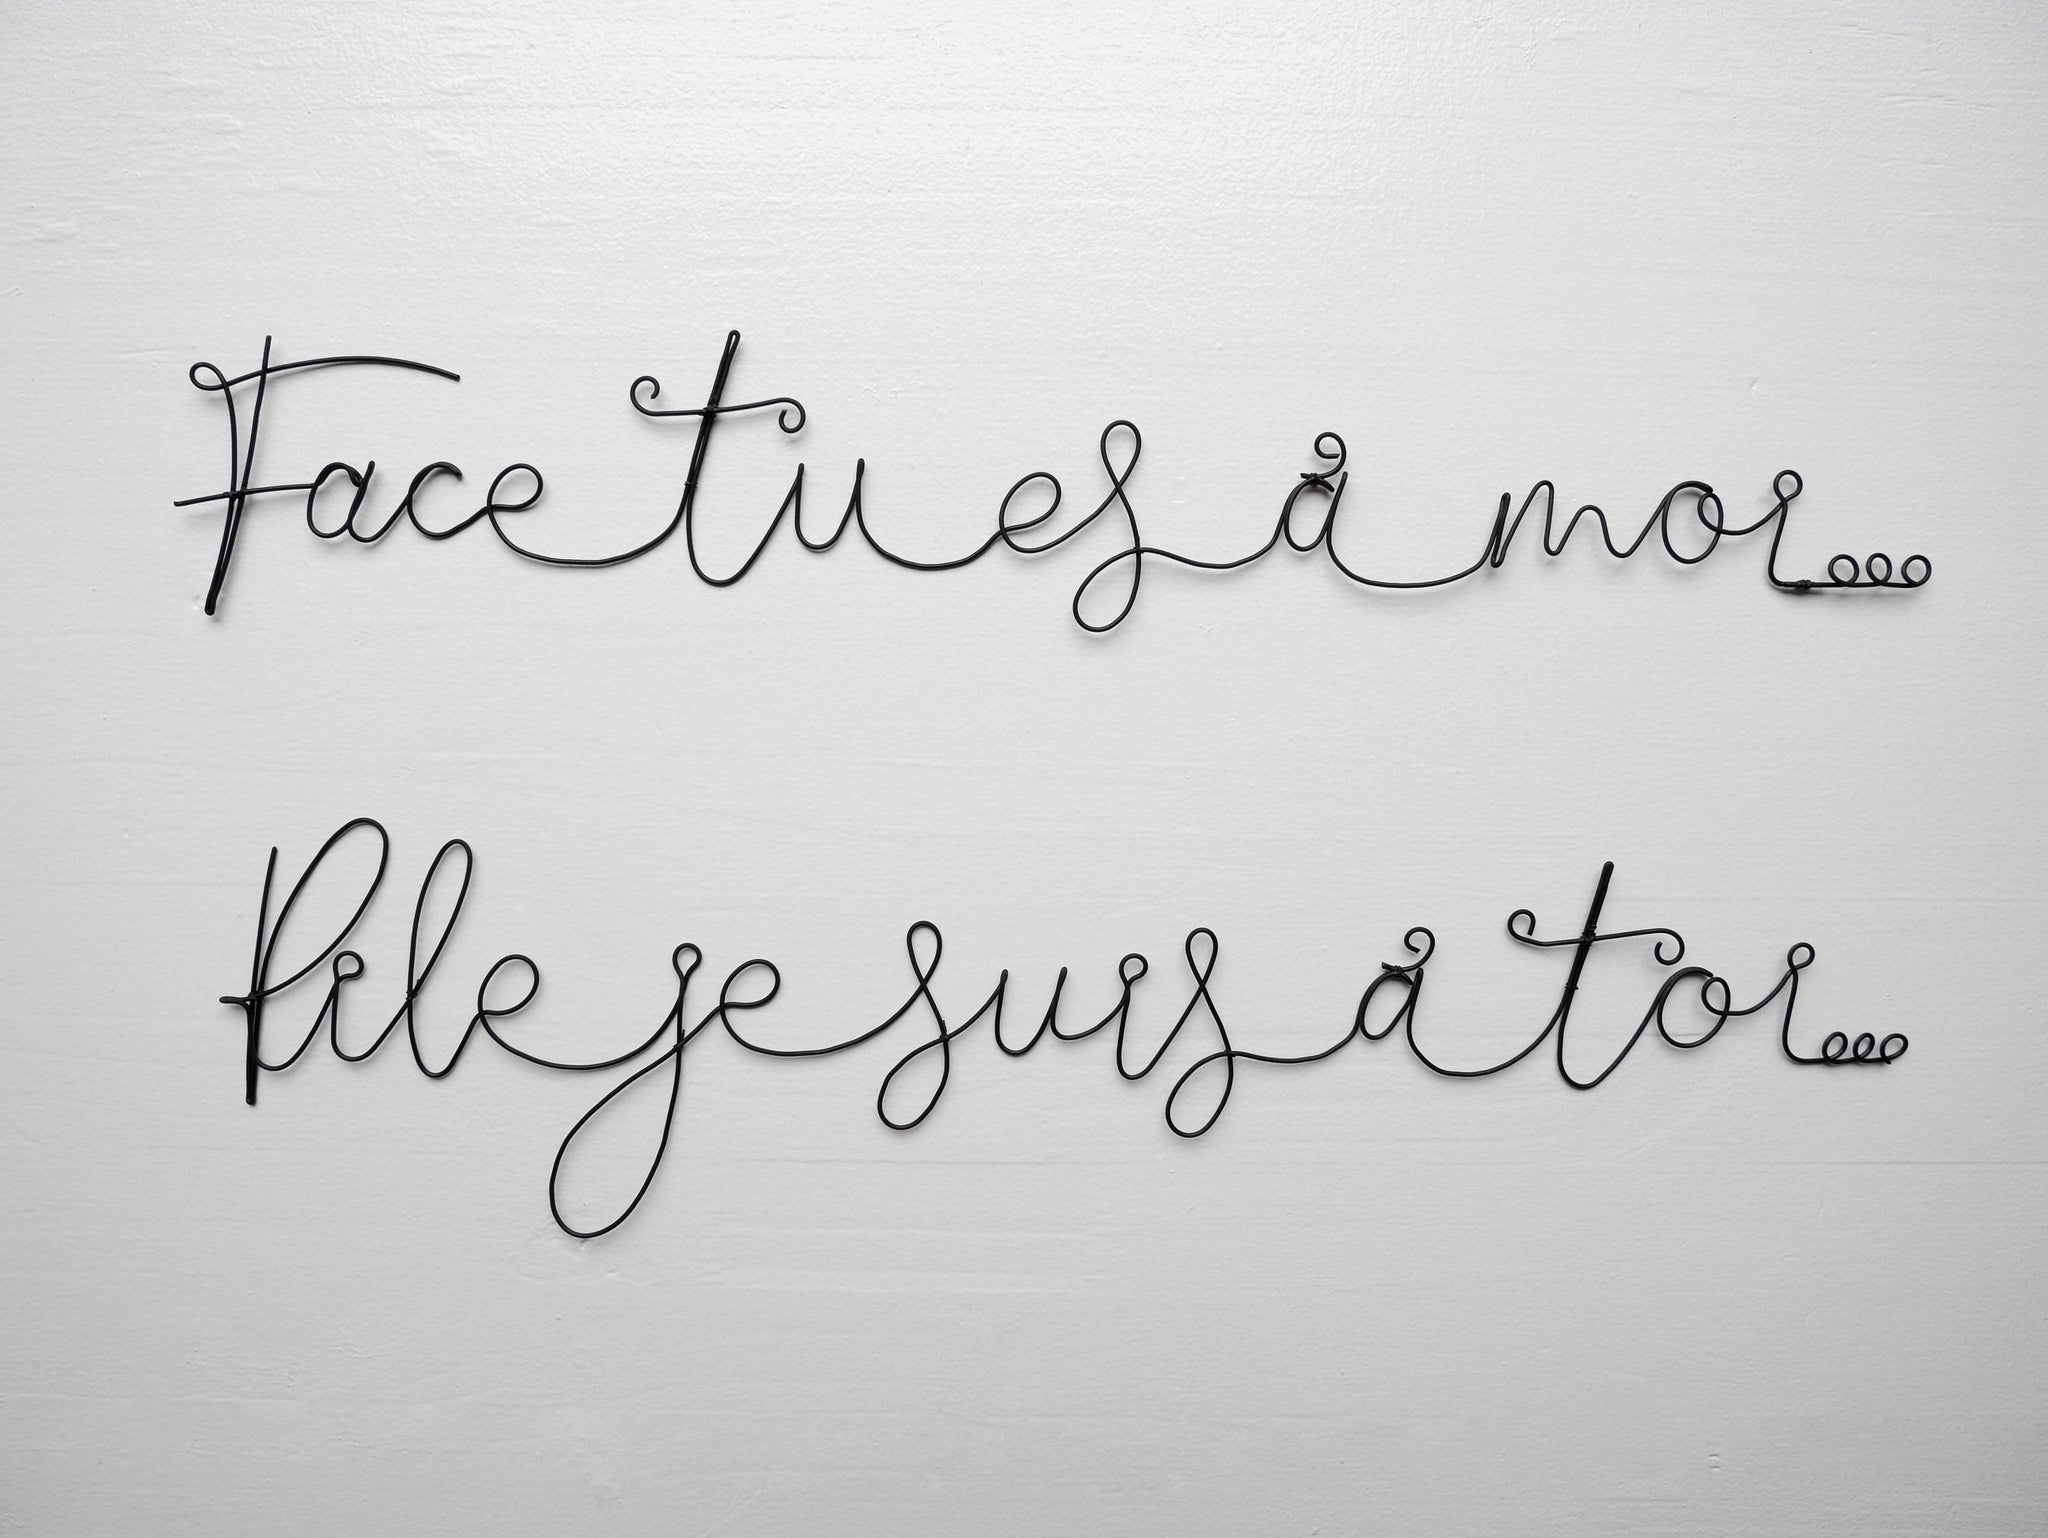 Face tu es à moi...
Pile je suis à toi...